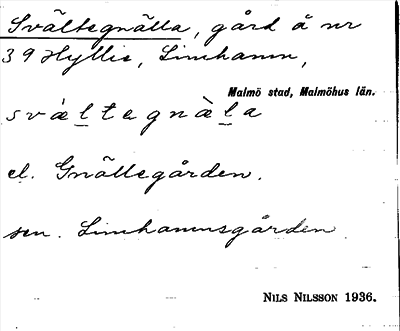 Svältegnälla, gård å nr
39 Hyllie, Limhamn,
Malmö stad, Malmöhus län.
svältegnäla
el. Gnällegården.
sen. Limhamnsgården
NILS NILSSON 1936.